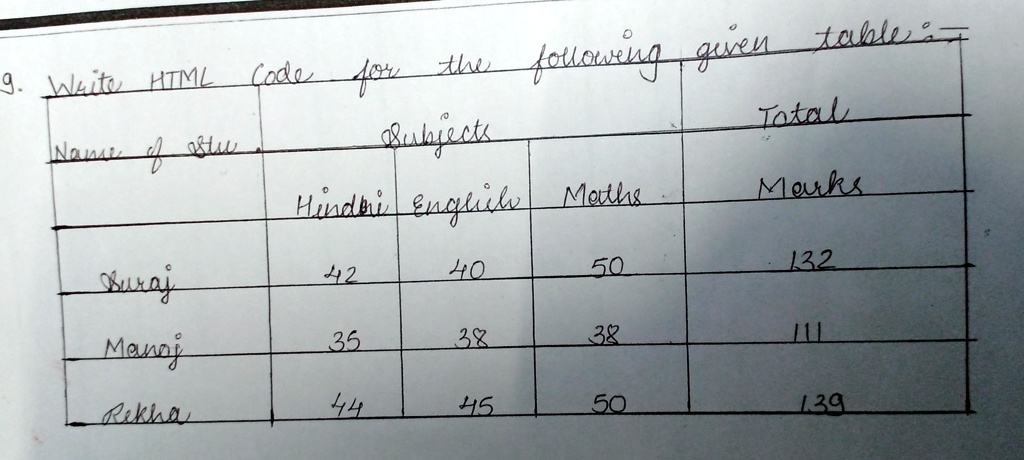 9. Write HTML Code for the following given table:-
Name of Stu. Subjects Total
Hindhi English Maths Marks
Suraj 42 40 50 132
Manoj 35 38 38 111
Rekha 44 45 50 139